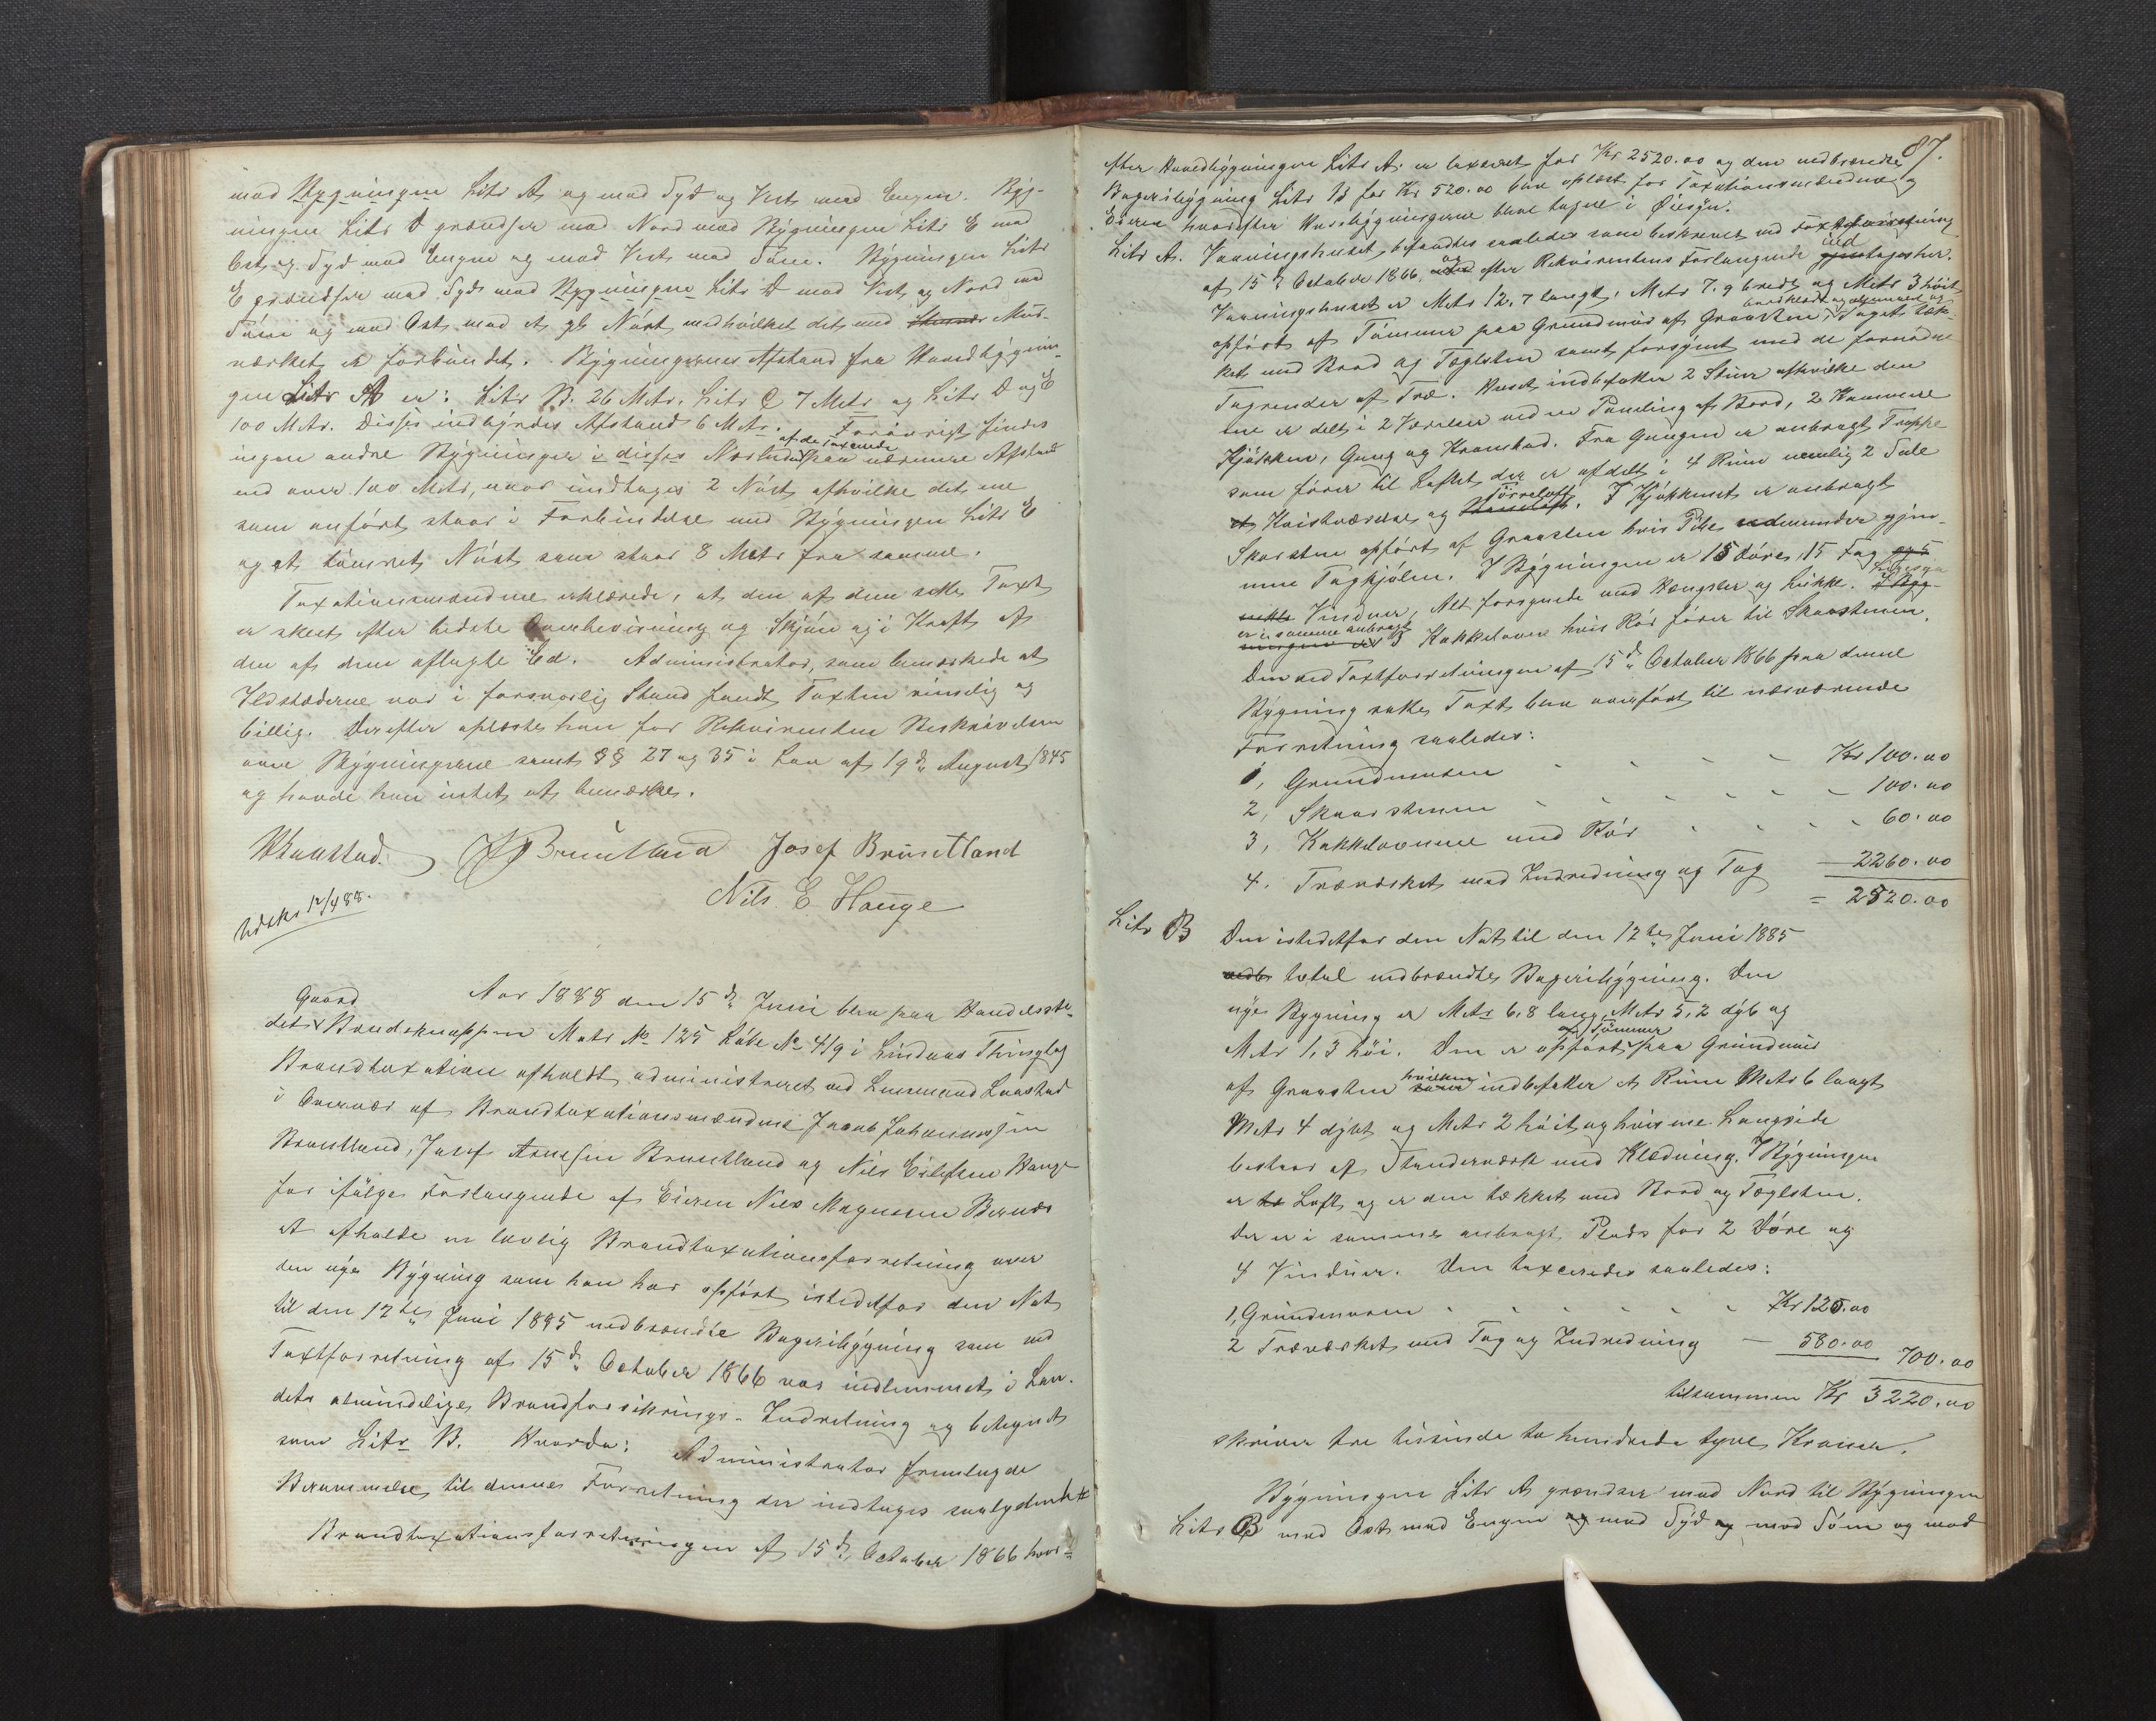 mod Bygningen Litr A og mod Syd og Vest med Engen. Byg-
ningen Litr D grændser mod Nord med Bygningen Litr E mod
Øst og Syd med Engen og mod Vest med Søen. Bygningen Litr
E grændser mod Syd med Bygningen Litr D mod Vest og Nord med
Søen og mod Øst med et gl. Nøst med hvilket det med Mur-
værket er forbundet. Bygningernes Afstand fra Hovedbygnin-
gen Litr A er: Litr B. 26 Mtr. Litr C 7 Metr og Litr D og E
100 Mtr. Disses indbyrdes Afstand 6 Metr. Forøvrigt findes
ingen andre Bygninger i disses Nærhed paa nærmere Afstand
end over 100 Metr, naar undtages 2 Nøst af hvilke det ene
som anført staar i Forbindelse med Bygningen Litr E
og et tømret Nøst som staar 8 Metr fra samme.
Taxationsmændene erklærede, at den af dem satte Taxt
er skeet efter bedste Overbevisning og Skjøn og i Kraft af
den af dem aflagte Ed. Administrator, som bemærkede at
Ildstæderne var i forsvarlig Stand fandt Taxten rimelig og
billig. Derefter oplæstes han for Rekvirenten Beskrivelsen
over Bygningerne samt §§ 27 og 35 i Lov af 19de August 1845
og havde han intet at bemærke.
Josef Bruntland
Nils E. Hauge
Udskr 12/4 88.
Aar 1888 den 15de Juni blev paa Handelsste-
Gaard
det Brudeknappen Matr No 125 Løbe No 419 i Lindaas Thinglag
Brandtaxation afholdt administreret ved Lensmand Laastad
i Overvær af Brandtaxationsmændene Jacob Johannessen
Bruntland, Josef Arnesen Bruntland og Nils Eilefsen Hauge
for ifølge Forlangende af Eieren Nils Magnesen Bernæs
at afholde en lovlig Brandtaxationsforretning over
den nye Bygning som han har opført istedetfor den Nat
til den 17de Juni 1885 nedbrændte Bageribygning som ved
Taxtforretning af 15de October 1866 var indlemmet i Lan-
dets almindelige Brandforsikrings-Indretning og betegnet
som Litr B. Hvorda: Administrator fremlagde
Berammelse til denne Forretning der indtages saalydende #
Brandtaxationsforretningen af 15de October 1866 hvor-
87.
efter Hovedbygningen Litr A. er taxeret for Kr 2520.00 og den nedbrændte
Bageribygning Litr B for Kr 520.00 blev oplæst for Taxationsmændene og
Eieren hvorefter Husebygningerne blev tagne i Øiesyn.
Litr A. Vaaningshuset befandtes saaledes som beskrevet ved Taxtforretning
af 15de October 1866 og efter Rekvirentens Forlangende indtages her.
Vaaningshuset er Metr 12,7 langt, Metr 7.9 bredt og Metr 3 høit
bordklædt og
opført af Tømmer paa Grundmur af Graasten, Taget tæk-
ket med Bord og Taglsten samt forsynet med de fornødne
Tagrender af Træ. Huset indbefatter 2 Stuer af hvilke den
ene er delt i 2 Værelser ved en Paneling af Bord, 2 Kammere
Kjøkken, Gang og Krambod. Fra Gangen er anbragt Trappe
som fører til Loftet der er afdelt i 4 Rum nemlig 2 Sale
et Kvistværelse og Tørreloft. I Kjøkkenet er anbragt
Skorsten opført af Graasten hvis Pibe udmunder gjen-
nem Tagkjølen. I Bygningen er 15 Døre, 15 Fag
Vinduer, Alt forsynede med Hængsler og Lukke.
er i samme anbragt
3 Kakkelovne hvis Rør fører til Skorstenen.
Den ved Taxtforretningen af 15de October 1866 paa denne
Bygning satte Taxt blev overført til nærværende
Forretning saaledes:
1, Grundmuren - - - - Kr 100.00
2, Skorstenen - - - - - - 100.00
3, Kakkelovnene med Rør - - - - 60.00
4. Træværket med Indredning og Tag — 2260.00
= 2520.00
Litr B Den istedetfor den Nat til den 17de Juni 1885
nedb total nedbrændte Bageribygning. Den
nye Bygning er Metr 6,8 lang, Metr 5,2 dyb og
af Tømmer
Metr 1,3 høi. Den er opført paa Grundmur
af Graasten hvilken indbefatter et Rum Metr 6 langt
Metr 4 dybt og Metr 2 høit og hvis ene Langside
bestaar af Stenderværk med Klædning. I Bygningen
er to Loft og er den tækket med Bord og Taglsten.
Der er i samme anbragt Plads for 2 Døre og
4 Vinduer. Den taxeredes saaledes:
1, Grundmuren - - - - - - Kr 120.00
2 Træværket med Tag og Indredning — 580.00 700.00
tilsammen Kr 3220.00
skriver tre tusinde to hundrede tyve Kroner.
Bygningen Litr A grændser mod Nord til Bygningen
Litr B mod Øst med Engen og mod Syd og mod Søen og mod